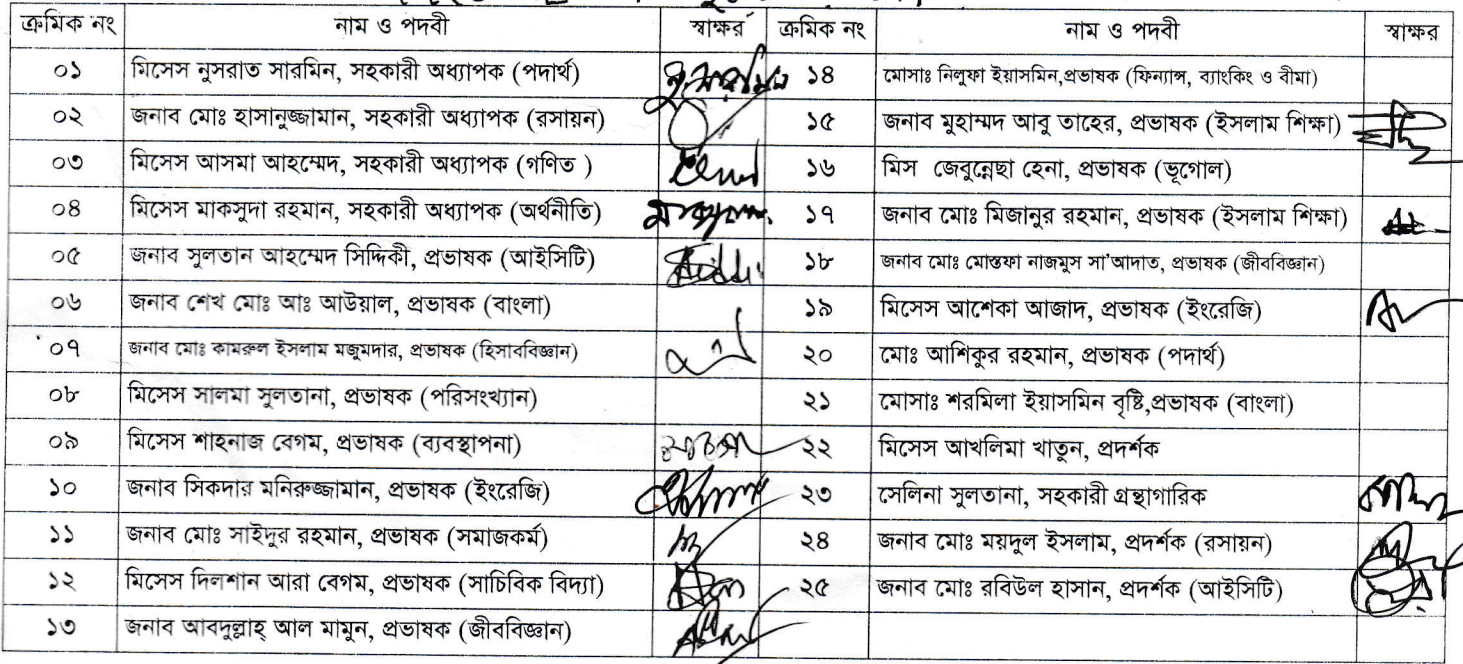 ক্রমিক নং নাম ও পদবী স্বাক্ষর ক্রমিক নং নাম ও পদবী স্বাক্ষর
০১ মিসেস নুসরাত সারমিন, সহকারী অধ্যাপক (পদার্থ) ১৪ মোসাঃ নিলুফা ইয়াসমিন,প্রভাষক (ফিন্যান্স, ব্যাংকিং ও বীমা)
০২ জনাব মোঃ হাসানুজ্জামান, সহকারী অধ্যাপক (রসায়ন) ১৫ জনাব মুহাম্মদ আবু তাহের, প্রভাষক (ইসলাম শিক্ষা)
০৩ মিসেস আসমা আহম্মেদ, সহকারী অধ্যাপক (গণিত ) ১৬ মিস জেবুন্নেছা হেনা, প্রভাষক (ভূগোল)
০৪ মিসেস মাকসুদা রহমান, সহকারী অধ্যাপক (অর্থনীতি) ১৭ জনাব মোঃ মিজানুর রহমান, প্রভাষক (ইসলাম শিক্ষা)
০৫ জনাব সুলতান আহম্মেদ সিদ্দিকী, প্রভাষক (আইসিটি) ১৮ জনাব মোঃ মোস্তফা নাজমুস সা'আদাত, প্রভাষক (জীববিজ্ঞান)
০৬ জনাব শেখ মোঃ আঃ আউয়াল, প্রভাষক (বাংলা) ১৯ মিসেস আশেকা আজাদ, প্রভাষক (ইংরেজি)
০৭ জনাব মোঃ কামরুল ইসলাম মজুমদার, প্রভাষক (হিসাববিজ্ঞান) ২০ মোঃ আশিকুর রহমান, প্রভাষক (পদার্থ)
০৮ মিসেস সালমা সুলতানা, প্রভাষক (পরিসংখ্যান) ২১ মোসাঃ শরমিলা ইয়াসমিন বৃষ্টি,প্রভাষক (বাংলা)
০৯ মিসেস শাহনাজ বেগম, প্রভাষক (ব্যবস্থাপনা) ২২ মিসেস আখলিমা খাতুন, প্রদর্শক
১০ জনাব সিকদার মনিরুজ্জামান, প্রভাষক (ইংরেজি) ২৩ সেলিনা সুলতানা, সহকারী গ্রন্থাগারিক
১১ জনাব মোঃ সাইদুর রহমান, প্রভাষক (সমাজকর্ম) ২৪ জনাব মোঃ ময়দুল ইসলাম, প্রদর্শক (রসায়ন)
১২ মিসেস দিলশান আরা বেগম, প্রভাষক (সাচিবিক বিদ্যা) ২৫ জনাব মোঃ রবিউল হাসান, প্রদর্শক (আইসিটি)
১৩ জনাব আবদুল্লাহ্ আল মামুন, প্রভাষক (জীববিজ্ঞান)